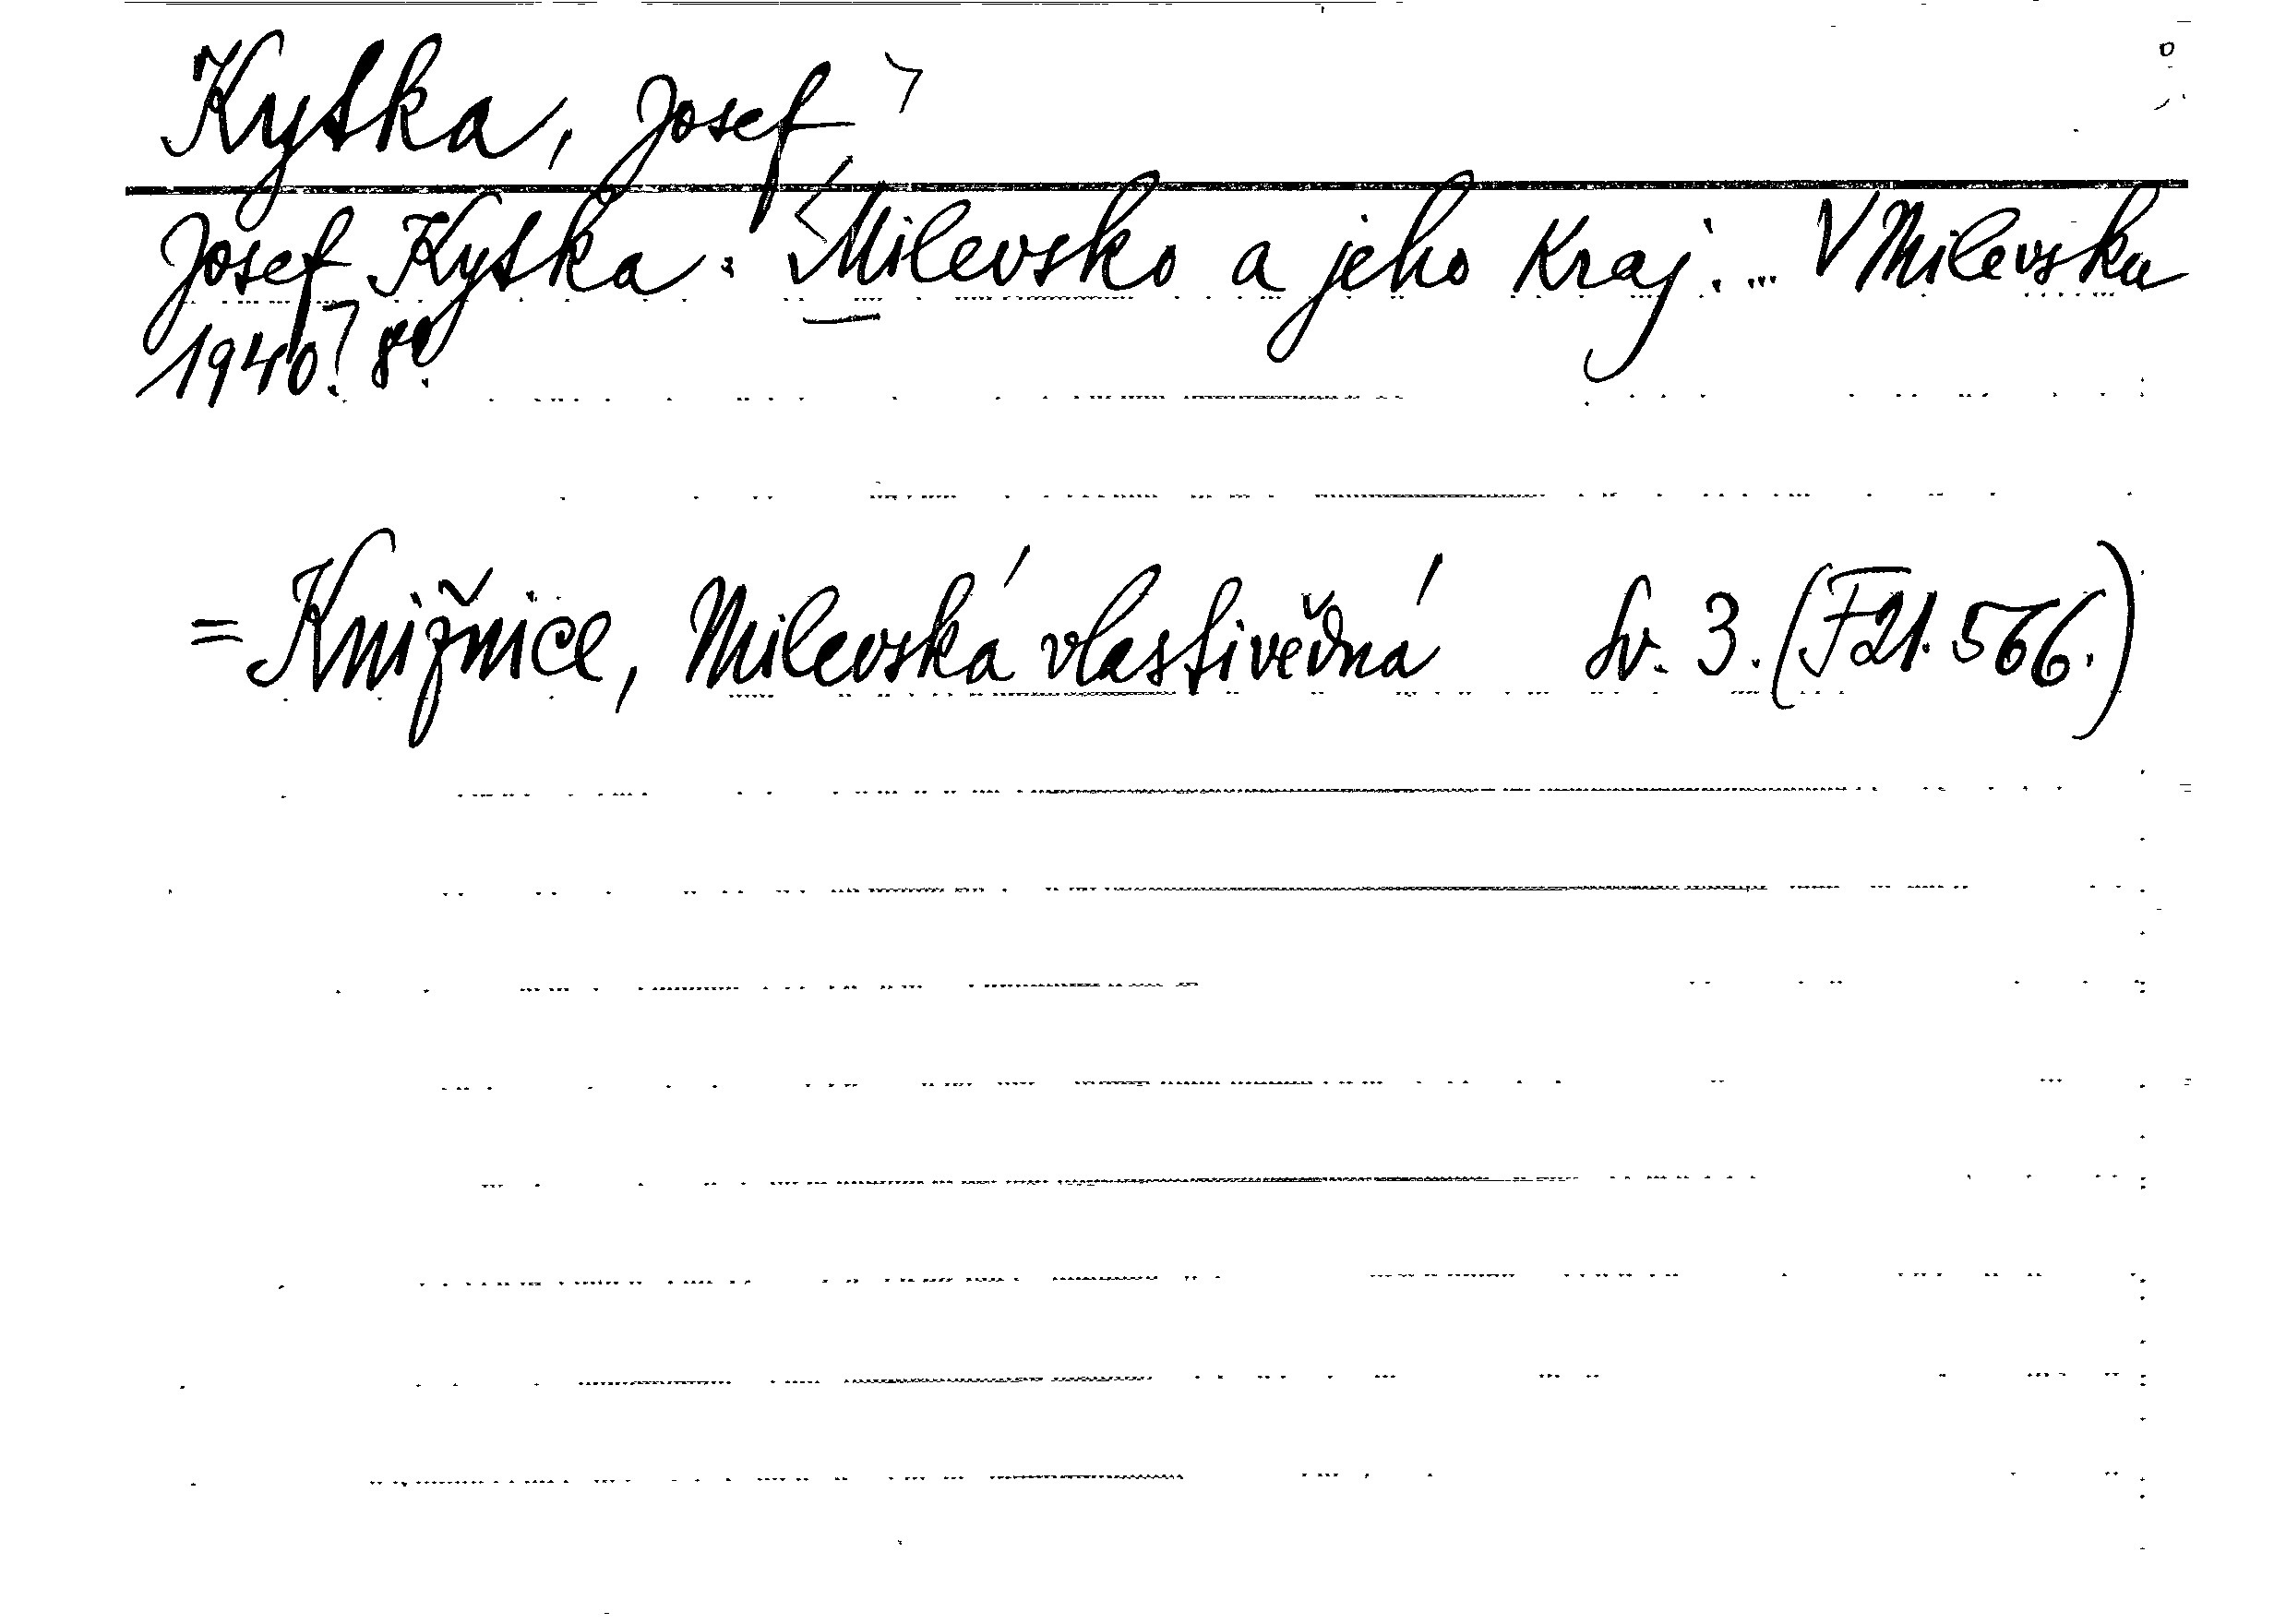 Kytka, Josef
Josef Kytka: Milevsko a jeho Kraj. ... V Milevsku
1940. 8°.
= Knižnice, Milevská vlastivědná Sv. 3. (F21.566.)